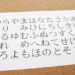 らやまはなたさか
り みひにちしき
るゆむふぬつすく
れ めへねてせ
ろよもほのとそ